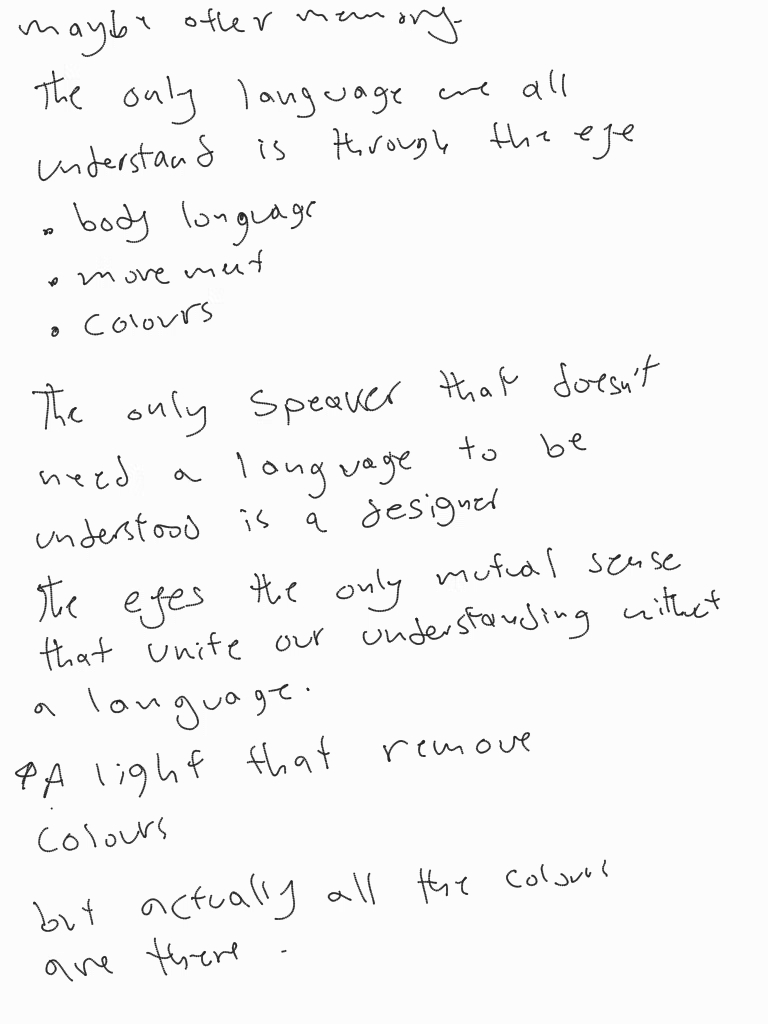 maybe other memory.
The only language we all
understand is through the eye
• body language
• movement
• colours
The only speaker that doesn't
need a language to be
understood is a designer
The eyes the only mutual sense
that unite our understanding without
a language.
A light that remove
colours
but actually all the colours
are there.